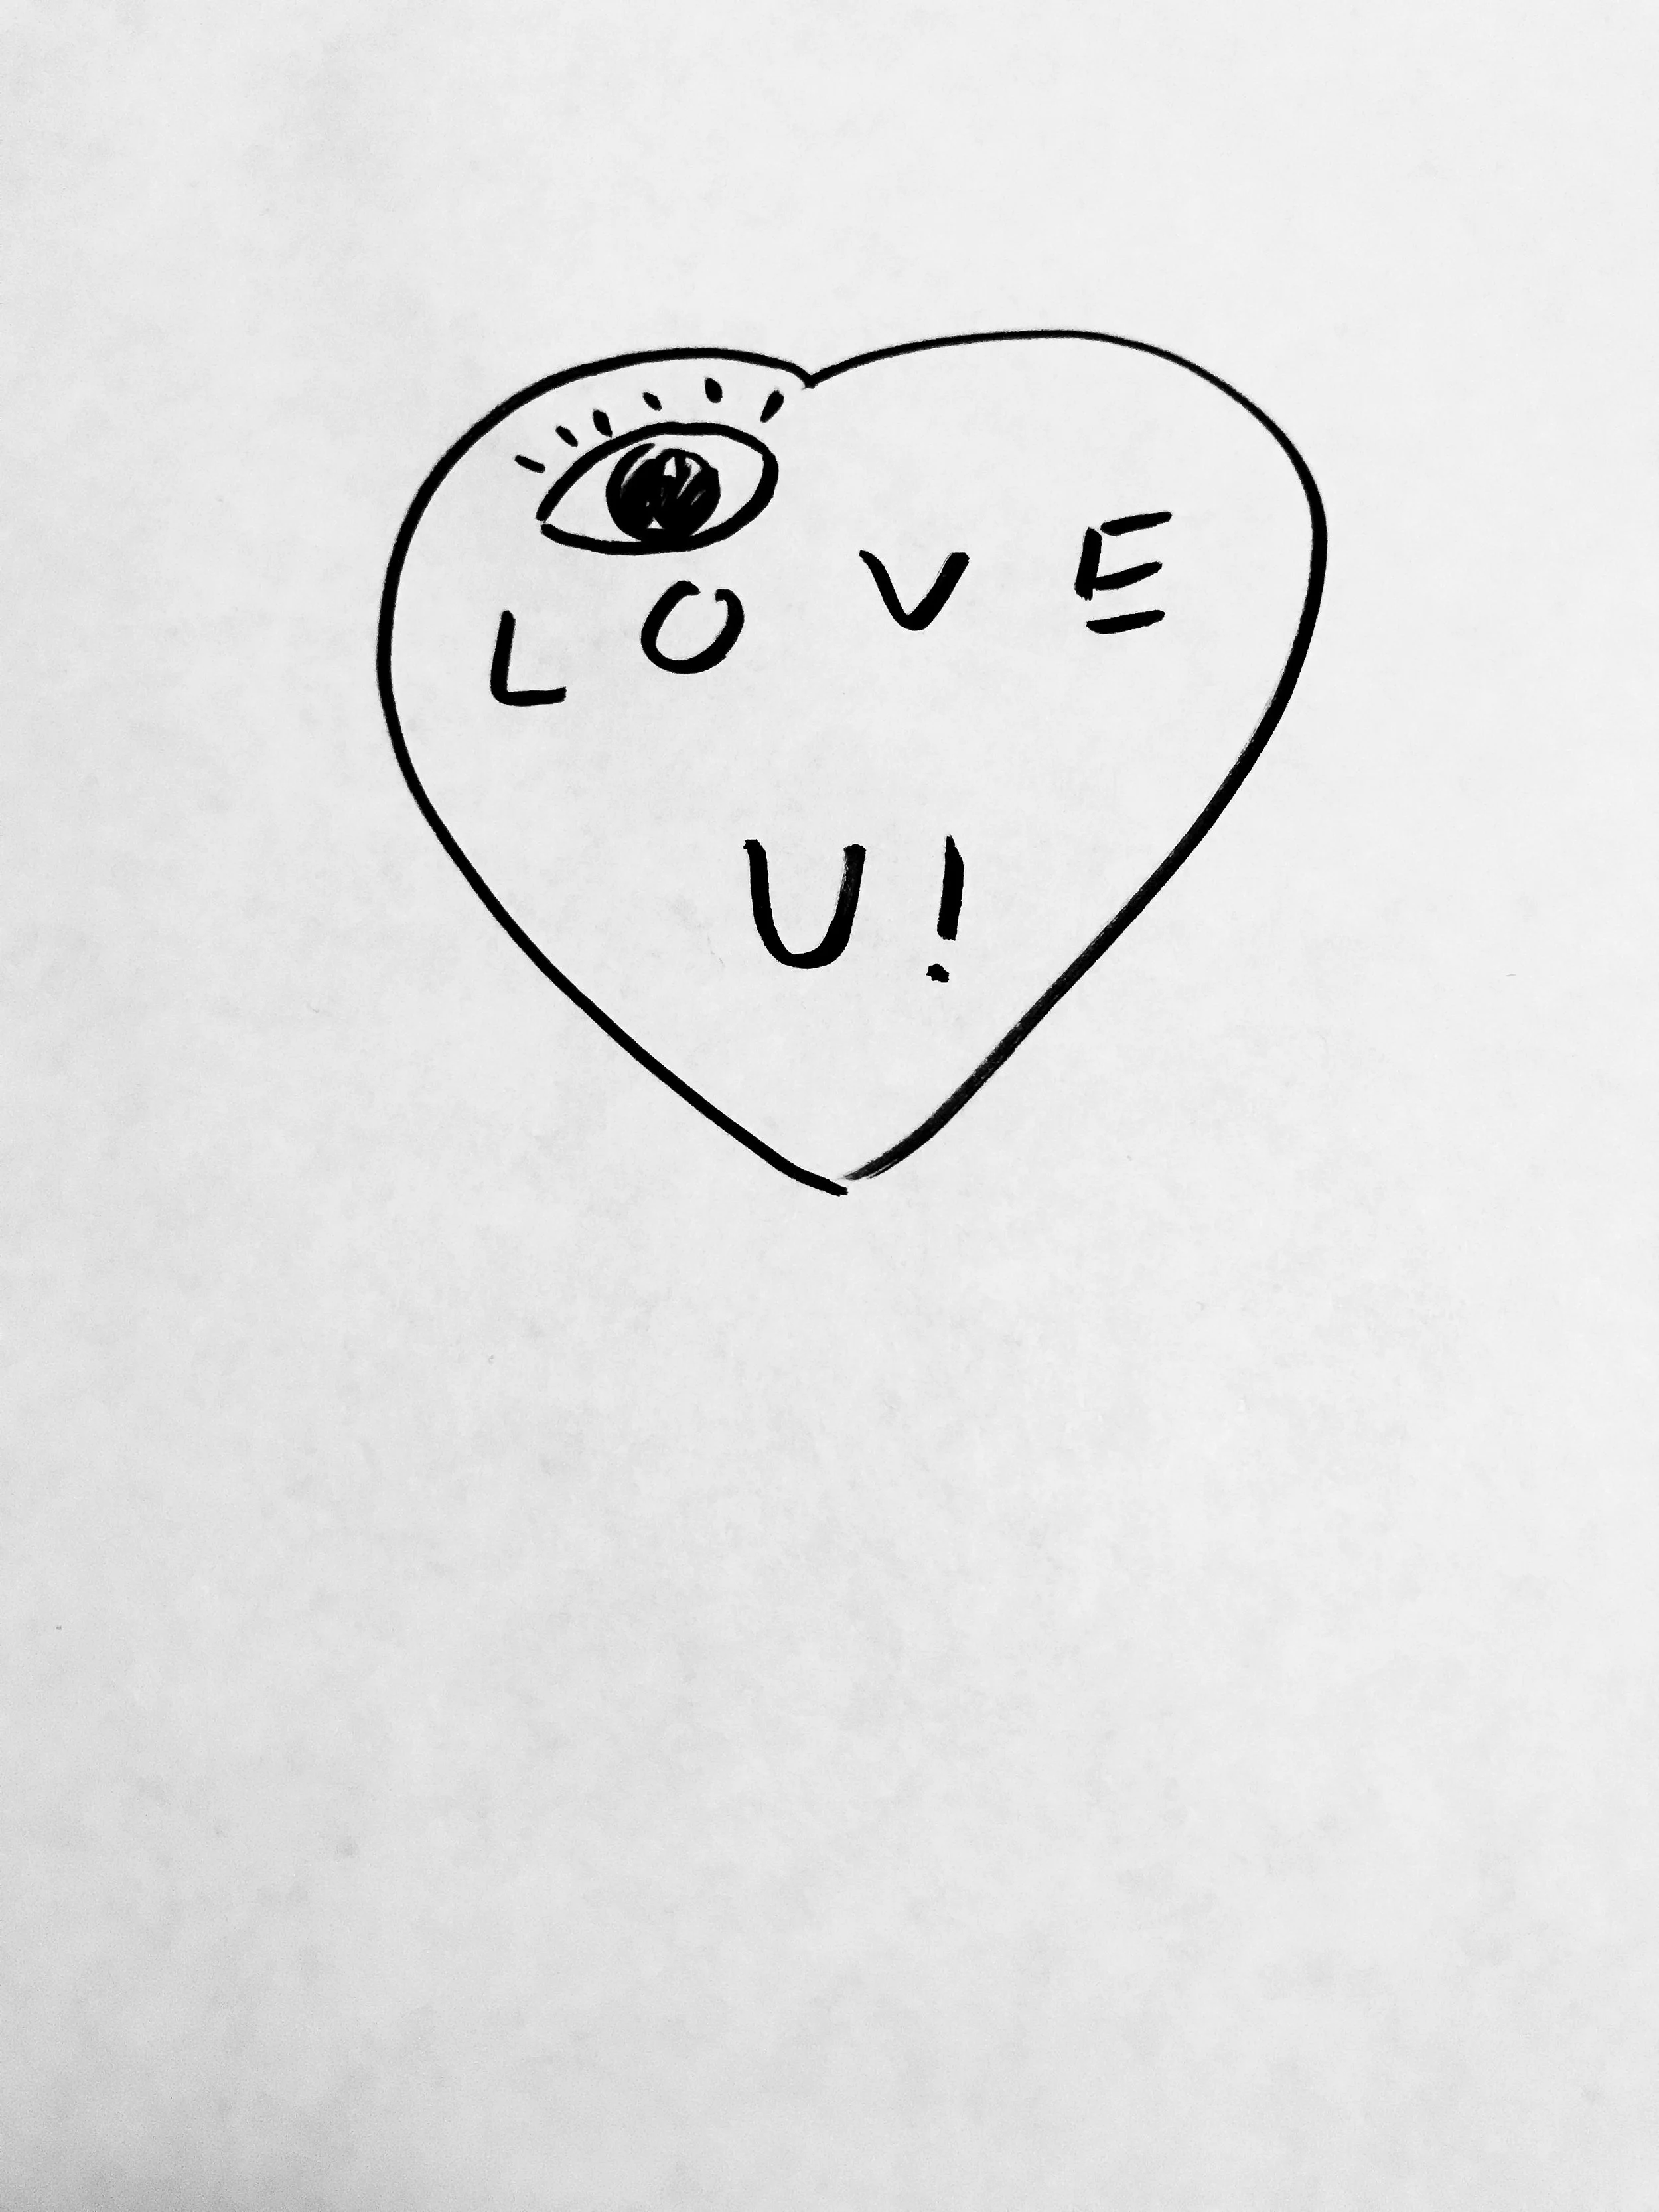 LOVE
U!